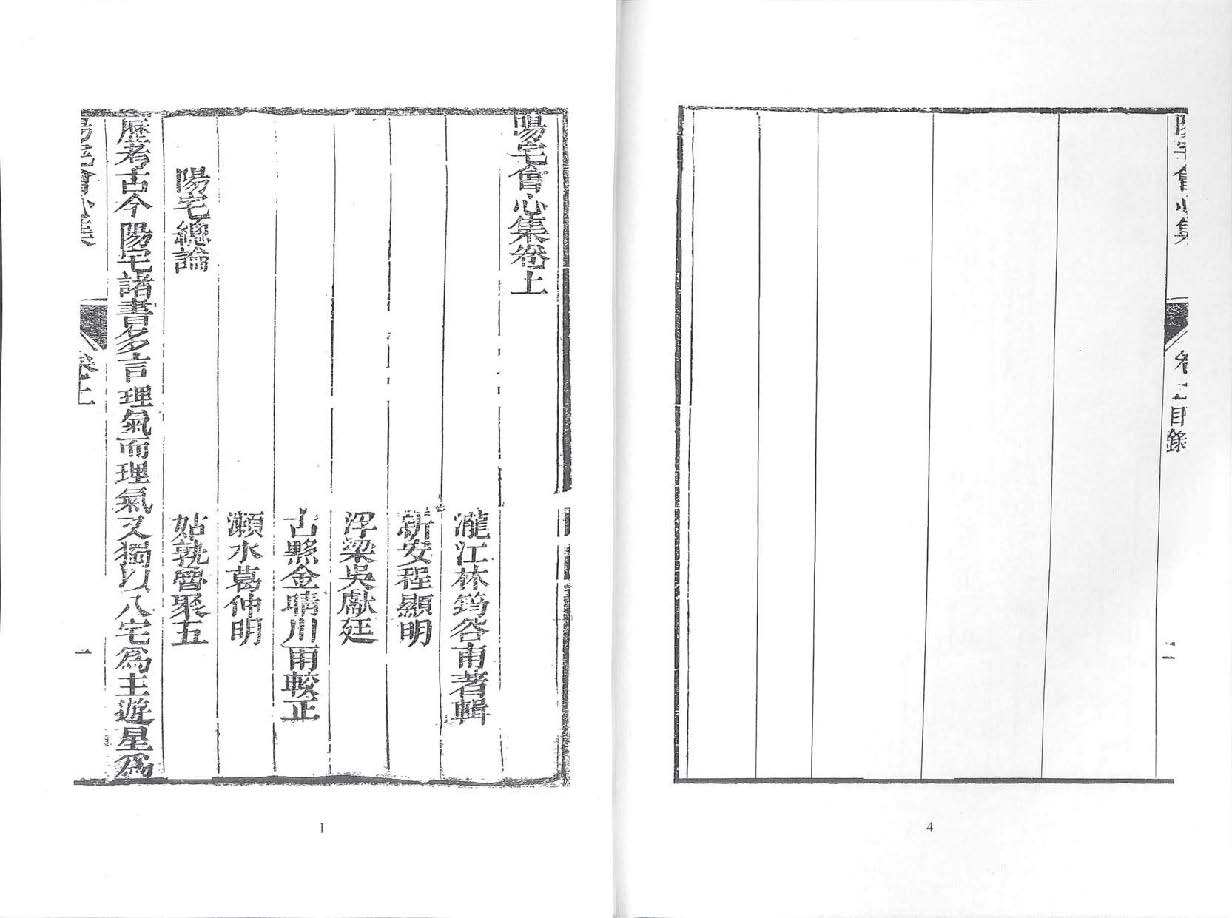 陽宅會心集
卷上目錄
二
4
陽宅會心集卷上
瀧江林筠谷甫著輯
新安程顯明
浮梁吳獻廷
古黟金晴川甫較正
瀨水葛仲明
姑孰魯聚五
陽宅總論
歷考古今陽宅諸書多言理氣而理氣又獨以八宅為主遊星為
陽宅會心集
卷上
一
1